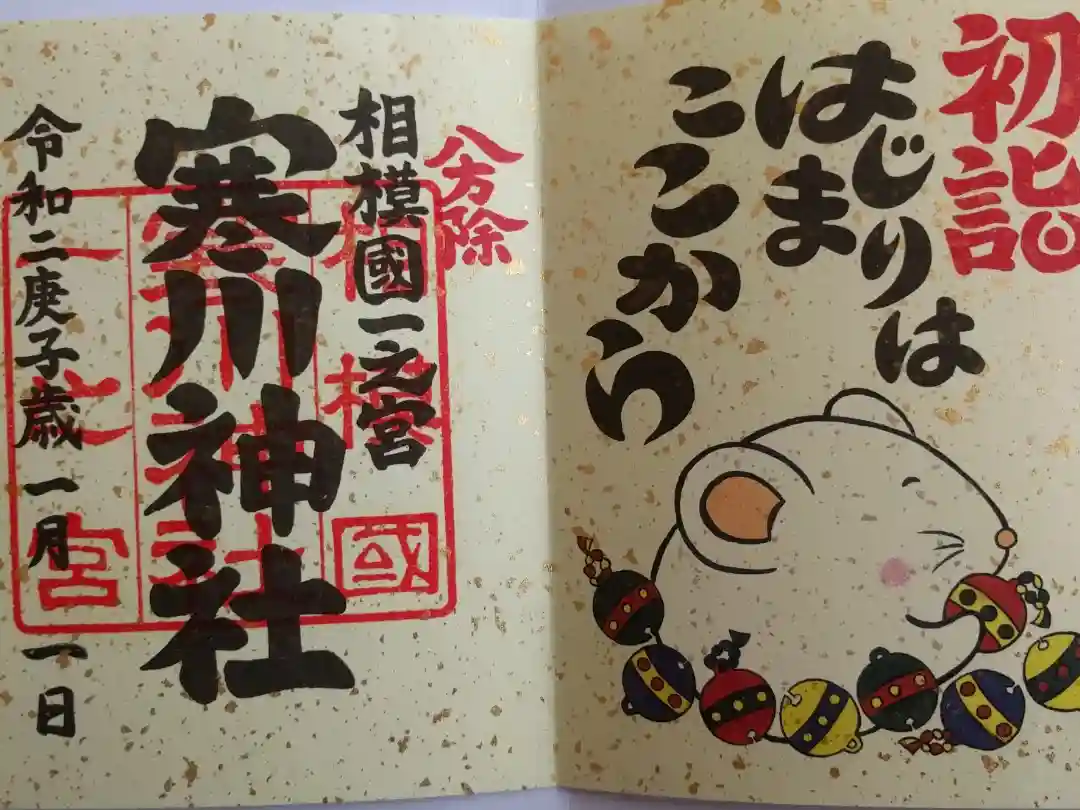 初詣
はじりは
はま
ここから
八方除
相模國一之宮
寒川神社
令和二庚子歳一月一日
相模國
寒川神社
一之宮